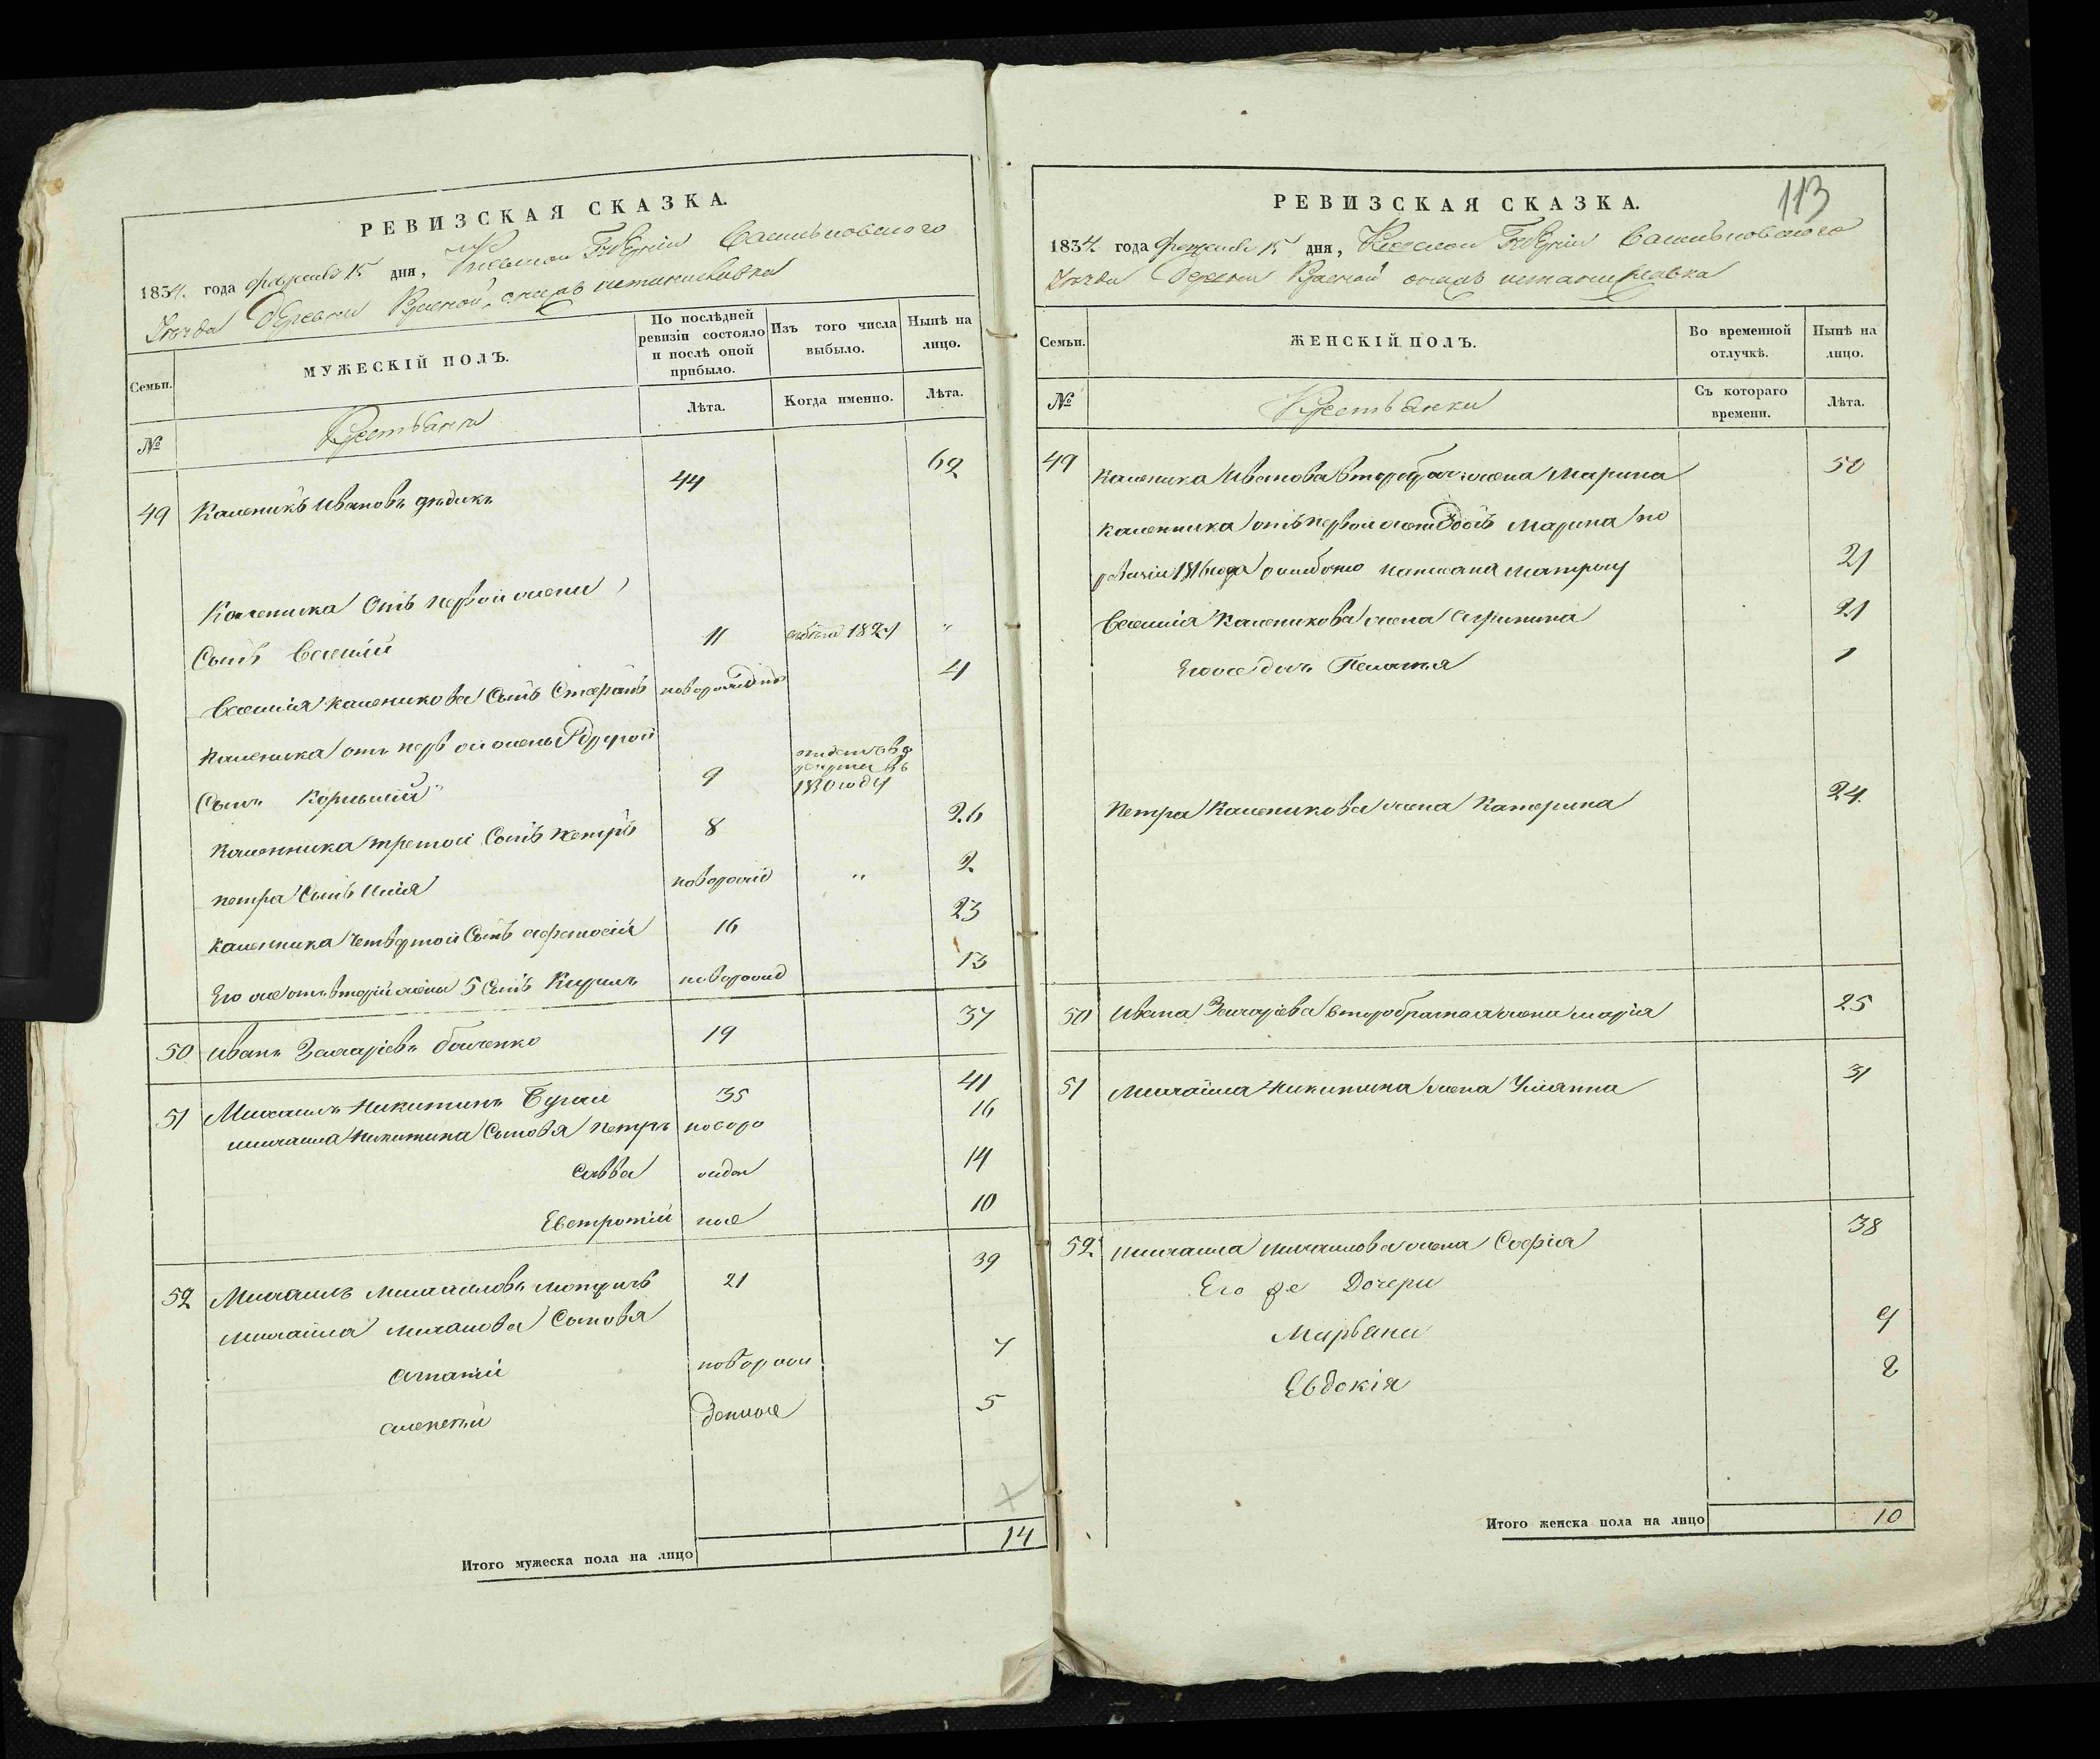 РЕВИЗСКАЯ СКАЗКА.
1834. года февраля 15 дня, Кіевской Губерніи Васильковскаго
Уезда Деревни Красной, онаяжъ
Семьи.
МУЖЕСКІЙ ПОЛЪ.
По послѣдней ревизіи состояло и послѣ оной прибыло.
Изъ того числа выбыло.
Нынѣ на лицо.
№
Крестьяне
Лѣта.
Когда именно.
Лѣта.
49 Каленикъ Ивановъ дѣдикъ 44 62
Каленика отъ первой жены
Сынъ Василій 11 1824 "
Василія Каленикова Сынъ Стефанъ новорожденъ 4
Каленика отъ первой жены другой
Сынъ Корнилій 9 отданъ въ рекруты въ 1830 году
Каленника третой Сынъ Петръ 8 26
Петра Сынъ Илія новорожд " 2
Каленника четвертой Сынъ 16 23
Его же отъ второй жены 5 Сынъ Кирилъ новорожд 13
50 Иванъ Захаріевъ Бойченко 19 37
51 Михаилъ Никитинъ Бугай 35 41
Михаила Никитина Сыновья Петръ новоро 16
Савва жден 14
Евстротій ные 10
52 Михаилъ Михаиловъ 21 39
Михаила Михаилова Сыновья
Игнатій новорож 7
Алексѣй денные 5
Итого мужеска пола на лицо 14
113
РЕВИЗСКАЯ СКАЗКА.
1834 года февраля 15 дня, Кіевской Губерніи Васильковскаго
Уезда Деревни Красной онаяжъ
Семьи.
ЖЕНСКІЙ ПОЛЪ.
Во временной отлучкѣ.
Нынѣ на лицо.
№
Крестьянки
Съ котораго времени.
Лѣта.
49 Каленика Иванова второбрач жена Марина 50
Каленника отъ первой жены дочь Марина по
ревизіи 1816 года ошибочно написана 21
Василія Каленикова жена 21
Его же дочь Пелагія 1
Петра Каленикова жена Катерина 24.
50 Ивана Захаріева второбрачная жена Марія 25
51 Михаила Никитина жена Уліянна 31
52. Михаила Михаилова жена Софія 38
Его же Дочери
9
Евдокія 2
Итого женска пола на лицо 10